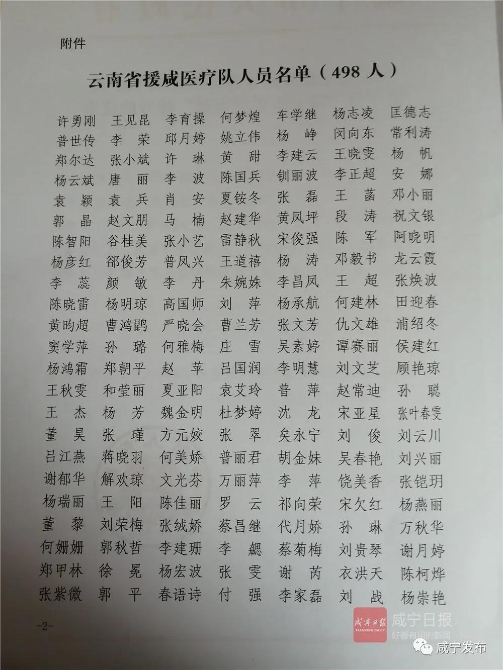 附件
云南省援咸医疗队人员名单（498人）
许勇刚 王见昆 李育操 何梦煌 车学继 杨志凌 匡德志
普世传 李荣 邱月婷 姚立伟 杨峥 闵向东 常利涛
郑尔达 张小斌 许琳 黄甜 李建云 王晓雯 杨帆
杨云斌 唐丽 李波 陈国兵 钏丽波 李正超 安娜
袁颖 袁兵 肖安 夏铵冬 张磊 王菡 邓小丽
郭晶 赵文朋 马楠 赵建华 黄凤坪 段涛 祝文银
陈智阳 谷桂美 张小艺 雷静秋 宋俊强 陈军 阿晓明
杨彦红 邰俊芳 普凤兴 王道禧 杨涛 邓毅书 龙云霞
李蕊 颜敏 李丹 朱婉姝 李昌凤 王超 张焕波
陈晓雷 杨明琼 高国师 刘萍 杨承航 何建林 田迎春
黄昀超 曹鸿鹍 严晓会 曹兰芳 张文芳 仇文雄 浦绍冬
窦学萍 孙璐 何雅梅 庄雪 吴素婷 谭赛丽 侯建红
杨鸿霜 郑朝平 赵苹 吕国润 李明慧 刘文芝 顾艳琼
王秋雯 和莹丽 夏亚阳 袁艾玲 普萍 赵常迪 孙聪
王杰 杨芳 魏金明 杜梦婷 沈龙 宋亚星 张叶春雯
董昊 张瑾 方元姣 张翠 矣永宁 刘俊 刘云川
吕江燕 蒋晓羽 何美娇 普丽君 胡金妹 吴春艳 刘兴丽
谢郁华 解欢琼 文光芬 万丽萍 李萍 饶美香 张铠玥
杨瑞丽 王阳 陈佳丽 罗云 祁向荣 宋欠红 杨燕丽
董黎 刘荣梅 张绒娇 蔡昌继 代月娇 孙琳 万秋华
何姗姗 郭秋哲 李建珊 李勰 蔡菊梅 刘贵琴 谢月婷
郑甲林 徐冕 杨宏波 张雯 谢芮 衣洪天 陈柯烨
张紫微 郭平 春语诗 付强 李家磊 刘战 杨崇艳
-2-
咸宁日报
咸宁发布